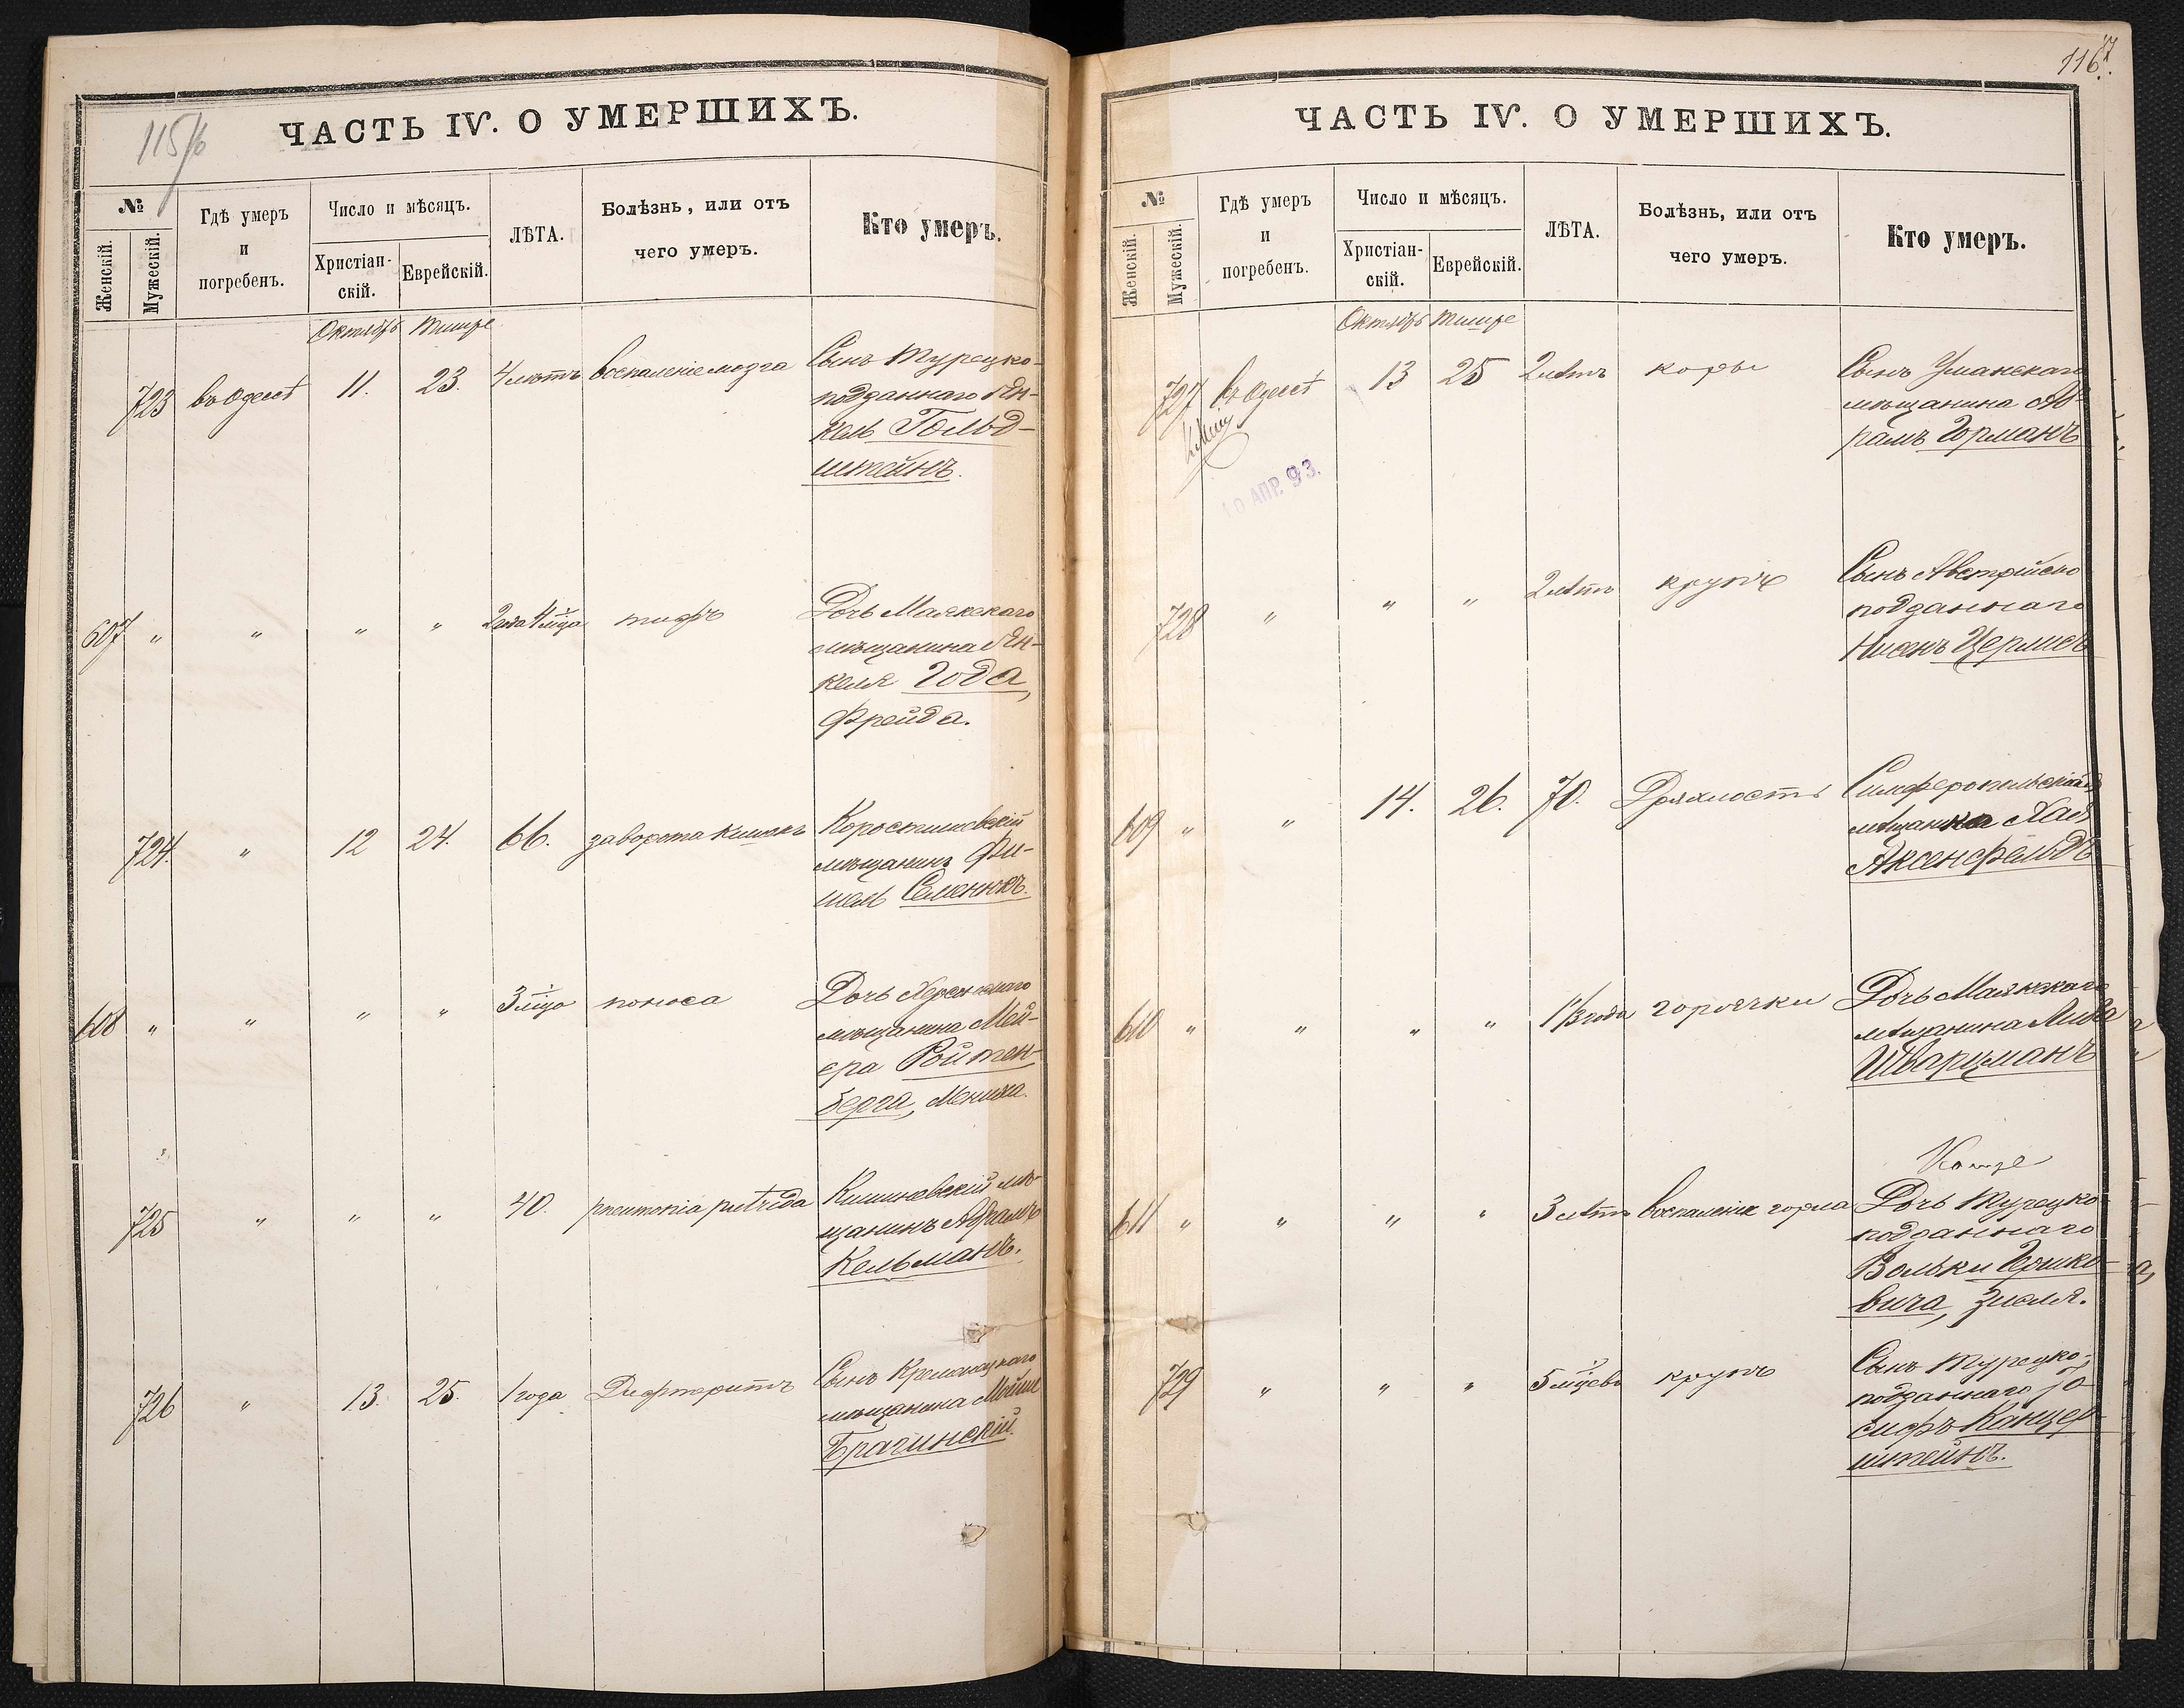 115/6
ЧАСТЬ IV. О УМЕРШИХЪ.
№
Женскій.
Мужескій.
Гдѣ умеръ
и
погребенъ.
Число и мѣсяцъ.
Христіан-
скій.
Еврейскій.
ЛѢТА.
Болѣзнь, или отъ
чего умеръ.
Кто умеръ.
Октябрь Тишре
723 въ Одессѣ 11. 23. 4 лѣтъ воспаленіе мозга Сынъ Турецко-
подданнаго Ян-
кель Гольд-
штейнъ.
607 " " " " 2 года 4 мѣца тифъ Дочь Маякскаго
мѣщанина Ян-
келя Года,
Фрейда.
724. " 12 24. 66. заворота кишекъ Коростишовскій
мѣщанинъ Фи-
шель Селенюкъ.
608 " " " " 3 мѣца поноса Дочь Херсонскаго
мѣщанина Мей-
ера Ройтен-
берга, Мениха.
725 " " " 40. pneumonia putrida Кишиневскій мѣ-
щанинъ Абрамъ
Кельманъ.
726 " 13. 25. 1 года Дифтеритъ Сынъ Кременецкаго
мѣщанина Мойше
Брагинскій.
116
7
ЧАСТЬ IV. О УМЕРШИХЪ.
№
Женскій.
Мужескій.
Гдѣ умеръ
и
погребенъ.
Число и мѣсяцъ.
Христіан-
скій.
Еврейскій.
ЛѢТА.
Болѣзнь, или отъ
чего умеръ.
Кто умеръ.
Октябрь Тишре
727 въ Одессѣ 13 25 2 лѣтъ коры Сынъ Уманскаго
мѣщанина Аб-
рамъ Горманъ
10 АПР. 93.
728 " " " 2 лѣтъ крупъ Сынъ Австрійско
подданнаго
Нисенъ Цермисъ
609 " " 14. 26. 70. Дряхлость Симферопольская
мѣщанка Хая
Аксенфельдъ
610 " " " " 1 1/3 года горячки Дочь Маякскаго
мѣщанина
Шварцманъ
611 " " " " 3 лѣтъ воспаленіе горла Дочь Турецко-
подданнаго
Вольки Гошко-
вича, Зисля.
729 " " " 5 мѣцевъ крупъ Сынъ Турецко-
подданнаго Іо-
сифъ Канцер-
штейнъ.